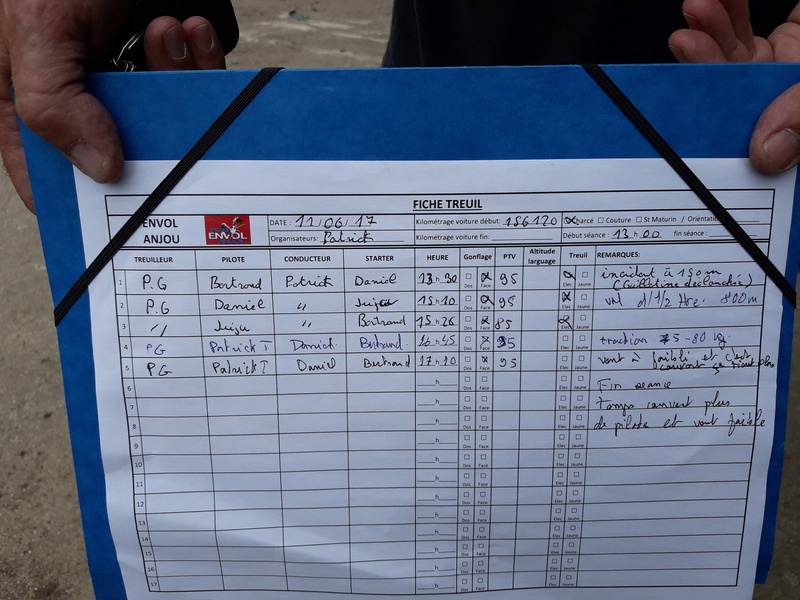 FICHE TREUIL
ENVOL ANJOU
ENVOL
DATE : 11/06/17
Kilométrage voiture début: 156120
☒ Jarcé ☐ Couture ☐ St Maturin / Orientation
Organisateurs: Patrick
Kilométrage voiture fin:
Début séance : 13 h 00 fin séance :
TREUILLEUR PILOTE CONDUCTEUR STARTER HEURE Gonflage PTV Altitude larguage Treuil REMARQUES:
1 P.G Bertrand Patrick Daniel 13 h 30 ☐ Dos ☒ Face 95 ☒ Elec ☐ Jaune incident à 150m (Guillotine déclenchée)
2 P.G Daniel " 15 h 10 ☐ Dos ☒ Face 95 ☒ Elec ☐ Jaune vol d'1/2 Hre. 800m
3 " " Bertrand 15 h 26 ☐ Dos ☒ Face 85 ☒ Elec ☐ Jaune
4 PG Patrick T Daniel Bertrand 16 h 45 ☐ Dos ☒ Face 95 ☐ Elec ☐ Jaune traction 75-80 kg
5 PG Patrick T Daniel Bertrand 17 h 10 ☐ Dos ☒ Face 95 ☐ Elec ☐ Jaune vent à faibli et c'est couvert plus
6 __h__ ☐ Dos ☐ Face ☐ Elec ☐ Jaune Fin seance
7 __h__ ☐ Dos ☐ Face ☐ Elec ☐ Jaune Temps couvert plus
8 __h__ ☐ Dos ☐ Face ☐ Elec ☐ Jaune de pilote et vent faible
9 __h__ ☐ Dos ☐ Face ☐ Elec ☐ Jaune
10 __h__ ☐ Dos ☐ Face ☐ Elec ☐ Jaune
11 __h__ ☐ Dos ☐ Face ☐ Elec ☐ Jaune
12 __h__ ☐ Dos ☐ Face ☐ Elec ☐ Jaune
13 __h__ ☐ Dos ☐ Face ☐ Elec ☐ Jaune
14 __h__ ☐ Dos ☐ Face ☐ Elec ☐ Jaune
15 __h__ ☐ Dos ☐ Face ☐ Elec ☐ Jaune
16 __h__ ☐ Dos ☐ Face ☐ Elec ☐ Jaune
17 __h__ ☐ Dos ☐ Face ☐ Elec ☐ Jaune